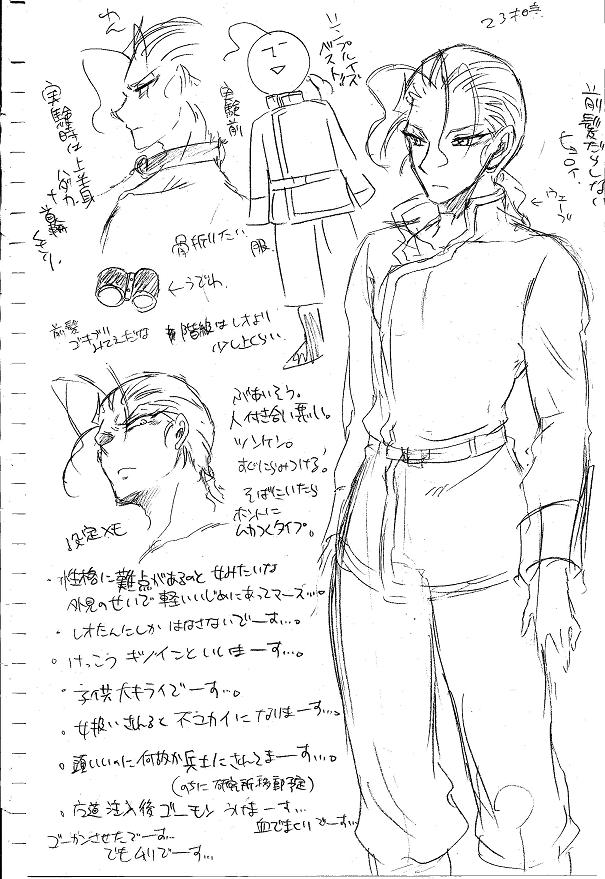 23才の時
わん
シンプルイズ
ベスト
実験前
実験時は上半身
ハダカ
首輪
前髪だらしない
ウェーブ
骨折りたい
服
←うでわ
前髪
ゴキブリ
みてえだな
階級はレオより
少し上くらい
ぶあいそう。
人付き合い悪い。
ツンケン。
すぐにらみつける。
そばにいたら
ホントに
ムカつくタイプ。
設定メモ
・性格に難点があるのと女みたいな
外見のせいで軽いいじめにあってマース…。
・レオたんにしかはなさないでーす…。
・けっこう
・子供大キライでーす…。
・女扱いされると不ユカイになりまーす…。
・頭いいのに何故か兵士にされてまーす…。
(のちに研究所移動予定)
注入後ゴーモンうけまーす…
血でまくりでーす…
ゴーカンさせたでーす…
でもムリでーす…